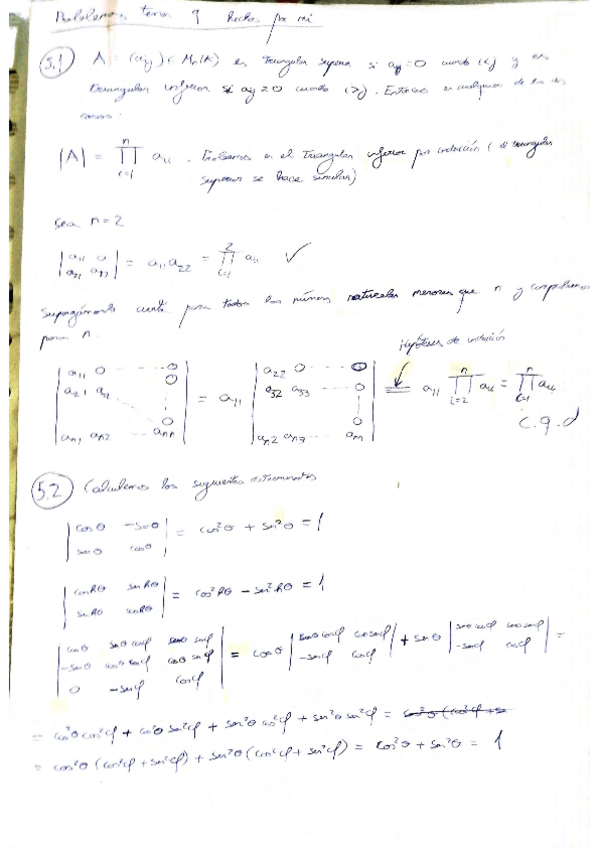 Problemas tema 9 hechos por mí
5.1 A = (aij) ∈ Mn(K) es triangular superior si aij = 0 cuando i<j y es
triangular inferior si aij = 0 cuando i>j. Entonces en cualquiera de los dos
casos.
|A| = ∏ⁿᵢ₌₁ aii. Probamos en el triangular inferior por inducción (el triangular
superior se hace similar)
Sea n=2
|a11 0; a21 a22| = a11 a22 = ∏²ᵢ₌₁ aii ✓
Supongámoslo cierto para todos los números naturales menores que n y comprobemos
para n.
hipótesis de inducción
|a11 0 ... 0; a21 a22 ... 0; an1 an2 ... ann| = a11 |a22 0 ... 0; a32 a33 ... 0; an2 an3 ... ann| = a11 ∏ⁿᵢ₌₂ aii = ∏ⁿᵢ₌₁ aii
c.q.d
5.2 Calculemos los siguientes determinantes
|cosθ -senθ; senθ cosθ| = cos²θ + sen²θ = 1
|coshθ senhθ; senhθ coshθ| = cos²hθ - sen²hθ = 1
|cosθ senθ cosφ senθ senφ; -senθ cosθ cosφ cosθ senφ; 0 -senφ cosφ| = cosθ |                    ; -senφ cosφ| + senθ |                    ; -senφ cosφ| =
= cos²θ cos²φ + cos²θ sen²φ + sen²θ cos²φ + sen²θ sen²φ = cos²θ (cos²φ + se
= cos²θ (cos²φ + sen²φ) + sen²θ (cos²φ + sen²φ) = cos²θ + sen²θ = 1